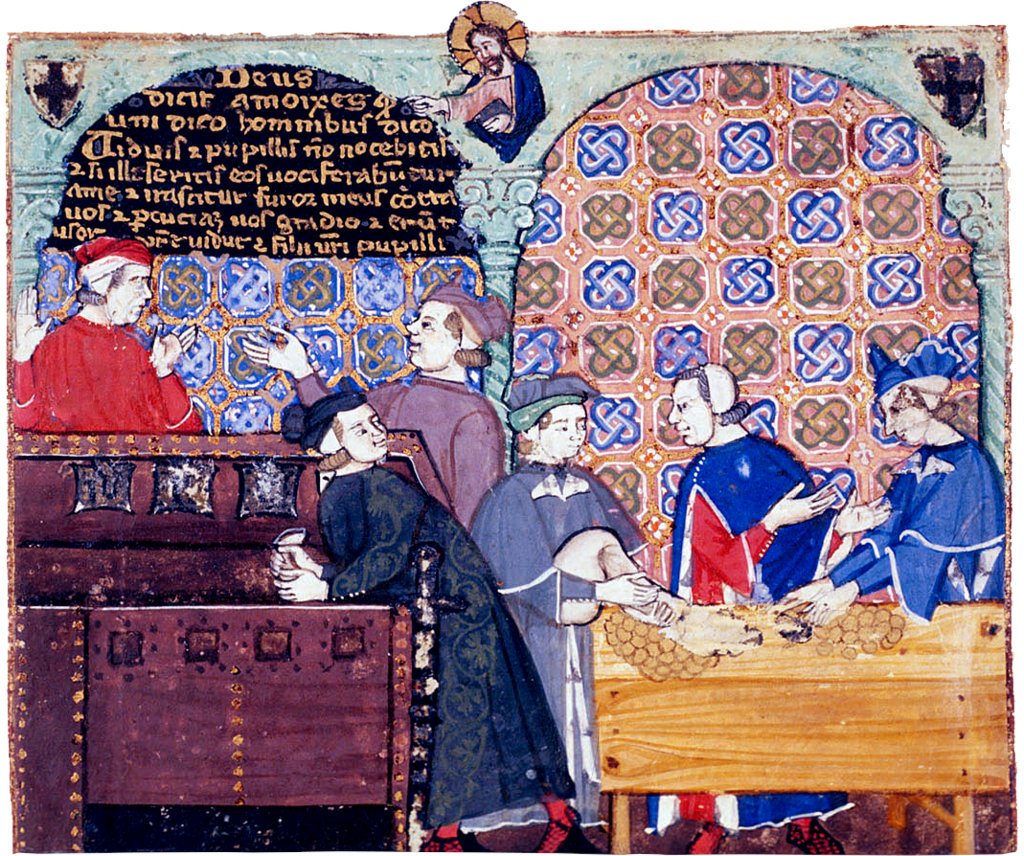 Deus
dicit amoixes q̃
uni dico hominibus dico
Viduis ⁊ pupillis nõ nocebitis
⁊ si illeseritis eos vociferabũ
⁊ irascitur furor meus cõtra
vos ⁊ pcuciaz vos gladio ⁊ erũt
vidue ⁊ filii uri pupilli